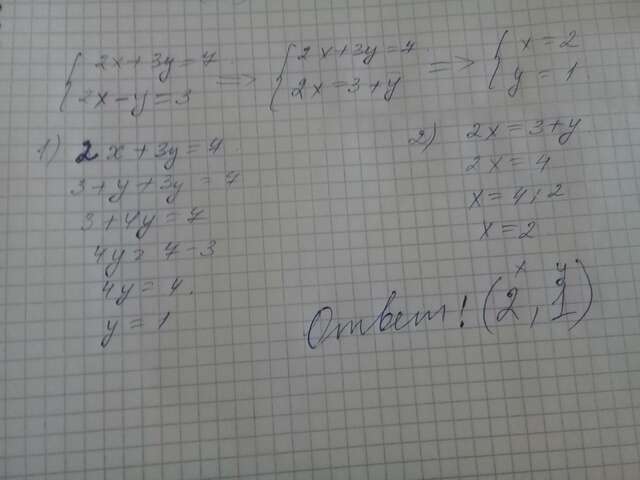 { 2x+3y=7 => { 2x+3y=7 => { x=2
2x-y=3 2x=3+y y=1
1) 2x+3y=7
3+y+3y=7
3+4y=7
4y=7-3
4y=4.
y=1
2) 2x=3+y
2x=4
x=4:2
x=2
x y
Ответ: (2,1)